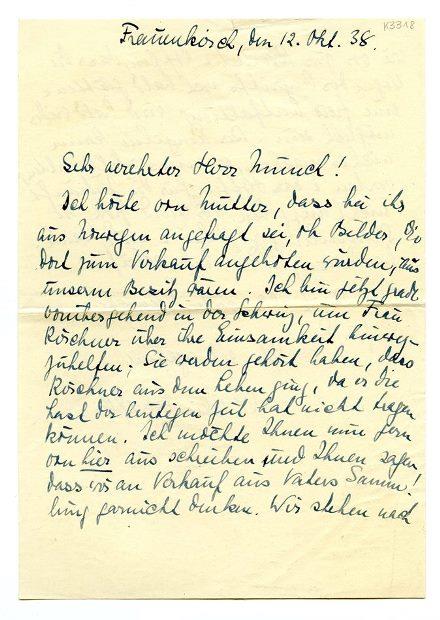 K3318
Frauenkirch, den 12. Okt. 38.
Sehr verehrter Herr Munch!
Ich hörte von Mutter, dass bei ihr
aus Norwegen angefragt sei, ob Bilder, die
dort zum Verkauf angeboten würden, aus
unserm Besitz wären. Ich bin jetzt grade
vorübergehend in der Schweiz, um Frau
Kirchner über ihre Einsamkeit hinweg-
zuhelfen. Sie werden gehört haben, dass
Kirchner aus dem Leben ging, da er die
Last der heutigen Zeit hat nicht tragen
können. Ich möchte Ihnen nun gern
von hier aus schreiben und Ihnen sagen,
dass wir an Verkauf aus Vaters Samm-
lung garnicht denken. Wir stehen nach